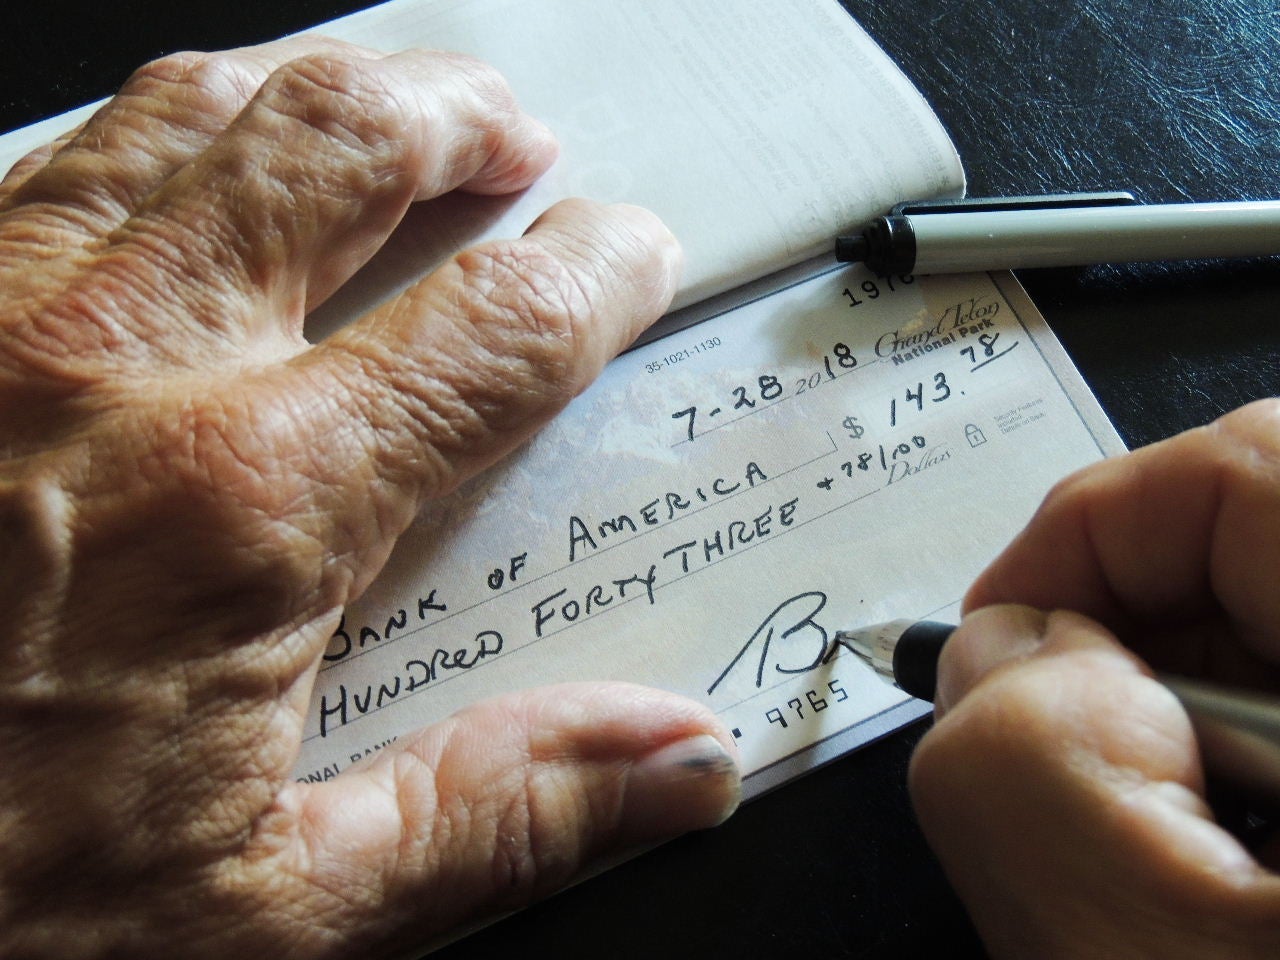 35-1021-1130
Grand Teton
National Park
7-28 2018
$ 143.78
BANK OF AMERICA
HUNDRED FORTY THREE + 78/100 Dollars
Security Features
Included
Details on Back
B
9765